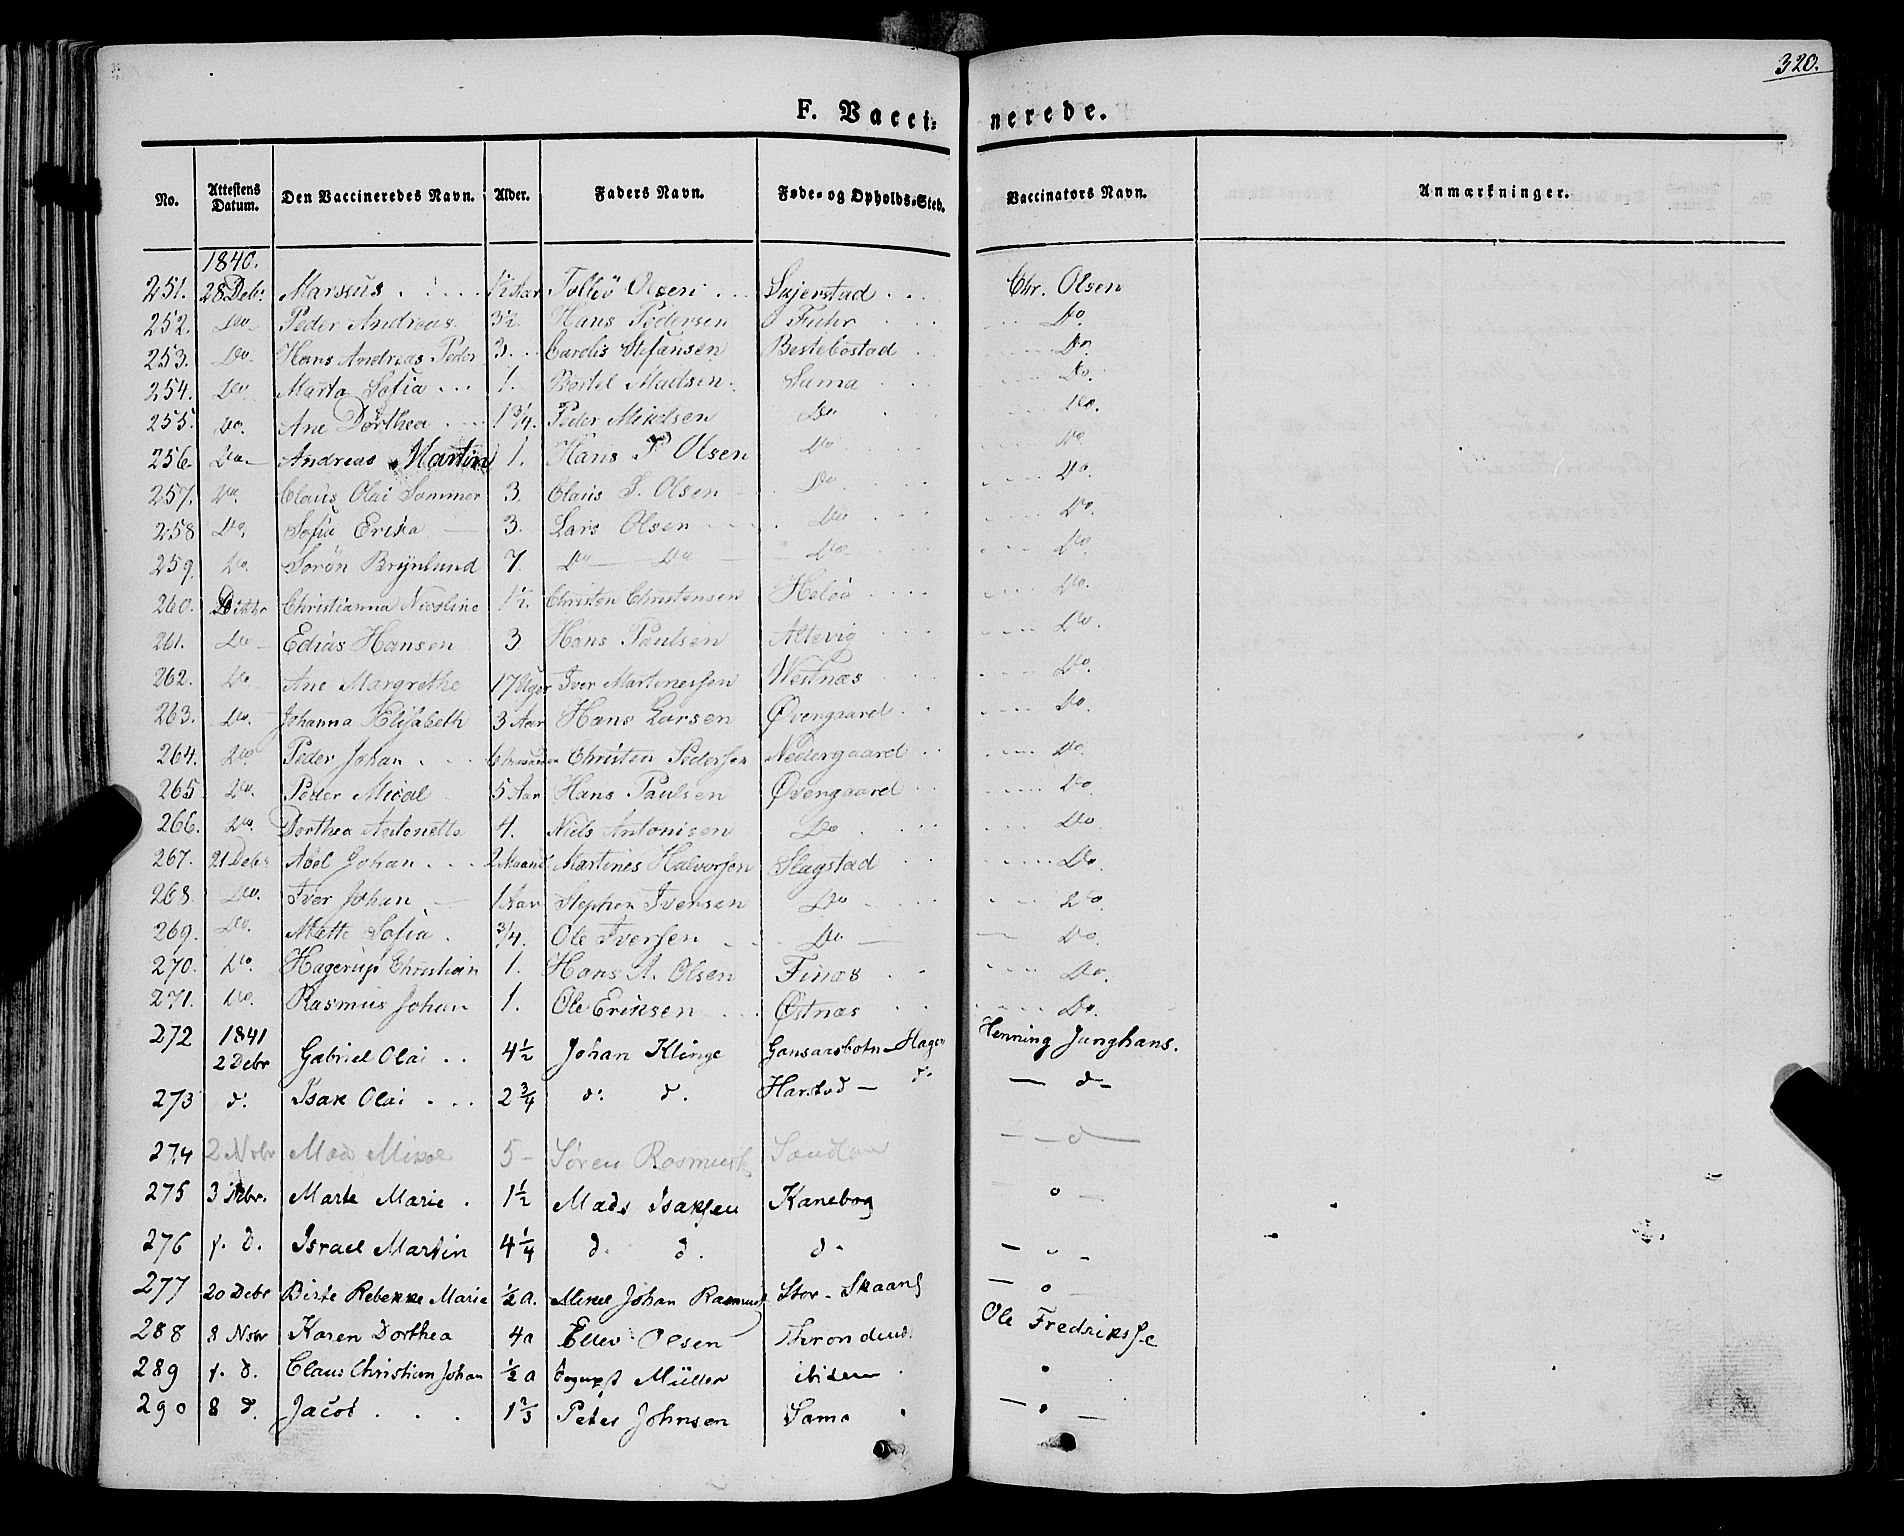 320.
F. Vaccinerede.
No. | Attestens Datum. | Den Vaccineredes Navn. | Alder. | Faders Navn. | Føde- og Opholds-Sted. | Vaccinators Navn. | Anmærkninger.
1840.
251. | 28 Debr | Marsius | 1½ Aar | Tolløv Olsen | Skjerstad | Chr. Olsen
252. | Do | Peder Andreas | 3½ | Hans Pedersen | Do
253. | Do. | Hans Andreas Peder | 3. | Carolis Stefansen | Bestebostad | Do.
254. | Do | Marta Sofia | 1. | Bertel Madsen. | Sama | Do.
255. | Do. | Ane Dorthea | 1 3/4. | Peder Mikelsen | Do | Do.
256. | Do. | Andreas Martin | 1. | Hans P Olsen | Do | Do.
257. | Do. | Claus Olai Sommer | 3. | Claus S. Olsen | Do | Do.
258 | Do. | Sofia Erika | 3. | Lars Olsen | Do | Do.
259. | Do. | Sørøn Brynlund | 7. | Do Do | Do | Do.
260. | Ditto | Christianna Nicoline | 1½. | Christen Christensen | Heløe | Do.
261. | Do | Edias Hansen | 3 | Hans Paulsen | Altevig | Do.
262. | Do | Ane Margrethe | 17 Uger | Iver Martinessen | Westnæs | Do.
263. | Do. | Johanna Elisabeth | 3 Aar | Hans Larsen | Øvengaard | Do
264. | Do. | Peder Johan | Christen Pedersen | Nedergaard | Do
265 | Do. | Peder Micael | 5 Aar | Hans Paulsen | Øvengaard | Do
266. | Do. | Dorthea Antonette | 4. | Niels Antonisen | Do | Do
267. | 21 Debr | Abel Johan | 2 Maand | Martines Halvorsen | Slagstad | Do
268. | Do. | Iver Johan | 1 Aar | Stephen Iversen | Do | Do
269. | Do. | Mette Sofia | 3/4. | Ole Iversen | Do | Do.
270. | Do. | Hagerup Christian | 1. | Hans A. Olsen | Finæs | Do.
271. | Do. | Rasmus Johan | 1. | Ole Eriksen | Østnæs | Do.
272 | 1841 2 Debr | Gabriel Olai | 4½ | Johan Klinge | Gansaasbotn-Hagen | Henning Junghans.
273 | d: | Isak Olai | 2 3/4 | d: d. | Harstad - d: | d-
274 | 2 Nobr | Mad Mikal | 5 - | Søren Rasmus | d
275 | 3 | Marte Marie. | 1½ | Mads Isaksen | Kanebog | o
276 | f. d. | Israel Martin | 4¼ | d. d. | d. | o
277 | 20 Debr | Birte Rebekke Marie | ½ a. | Mikel Johan Rasmus | Stor-Skaans | o
288 | 8 Nobr | Karen Dorthea | 4a | Ellev Olsen | Throndenes | Ole Fredriksse
289 | f. d. | Claus Christian Johan | ½ a | August Müller | ibidem | o
290 | 8 d. | Jacob | 1 2/3 | Peter Johnsen | Sama | o